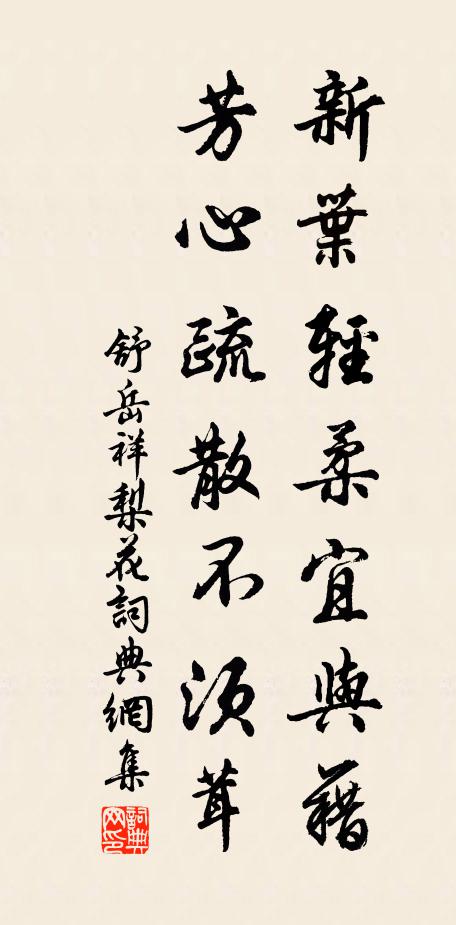 新葉輕柔宜與藉
芳心疏散不須茸
舒岳祥梨花詞典網集
詞典网印